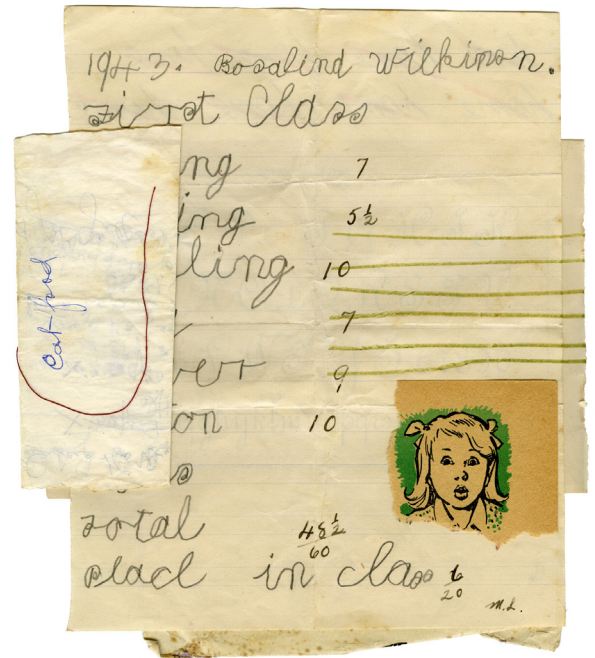 1943. Rosalind Wilkinson.
First Class
ng 7
ing 5½
lling 10
7
ver 9
on 10
s
Total 48½/60
place in class 6/20
M.L.
Cat food